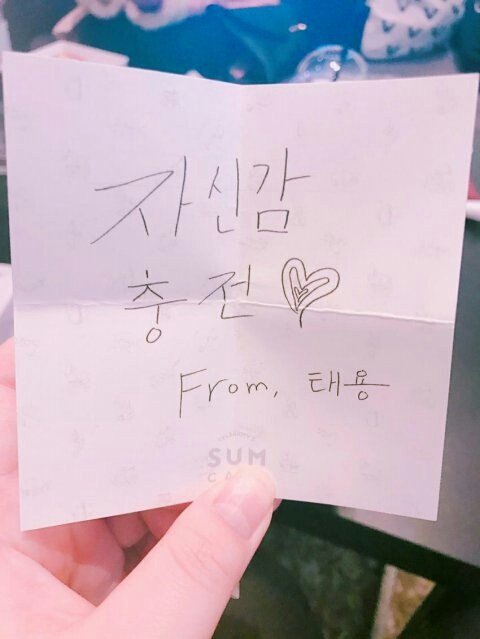 자신감
충전
From, 태용
SUM